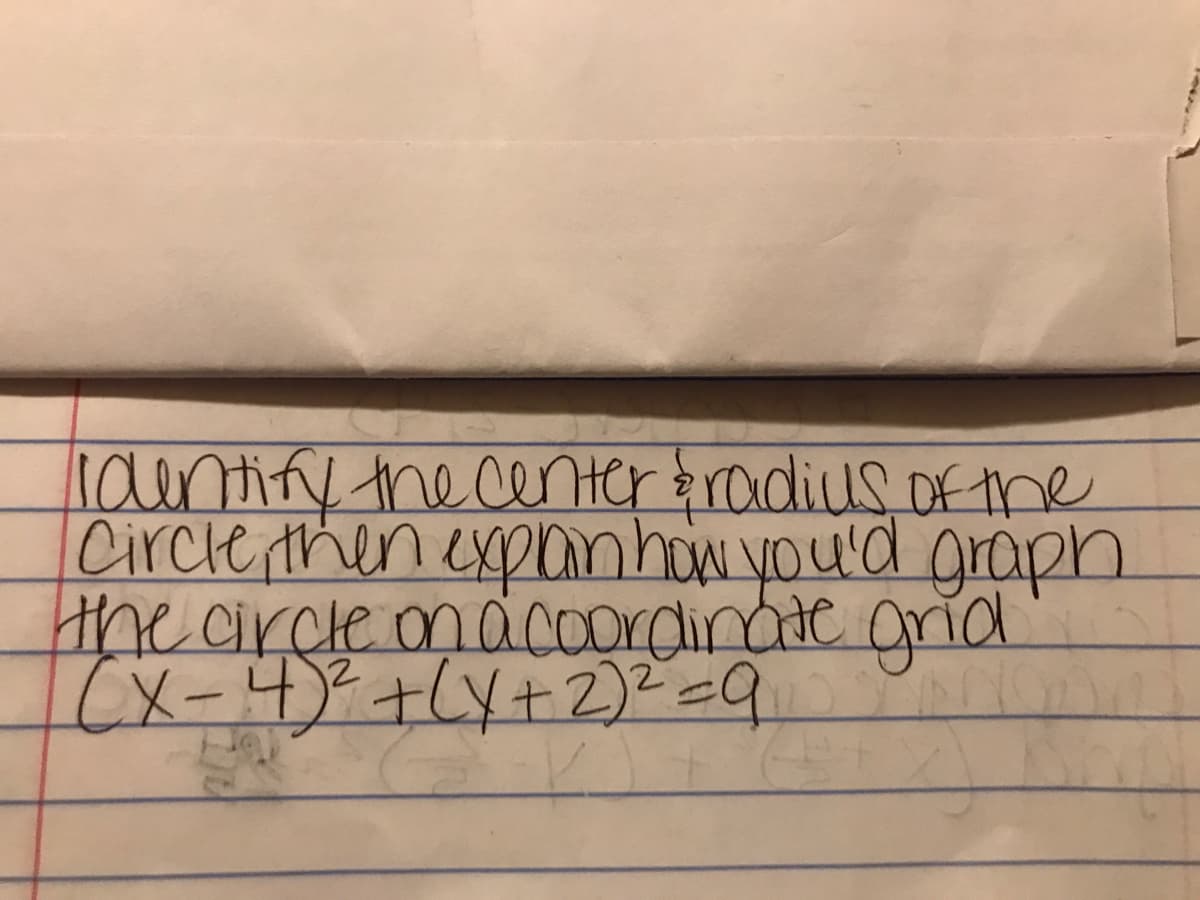 Identify the center & radius of the
circle, then explain how you'd graph
the circle on a coordinate grid
(x-4)² + (y+2)² = 9